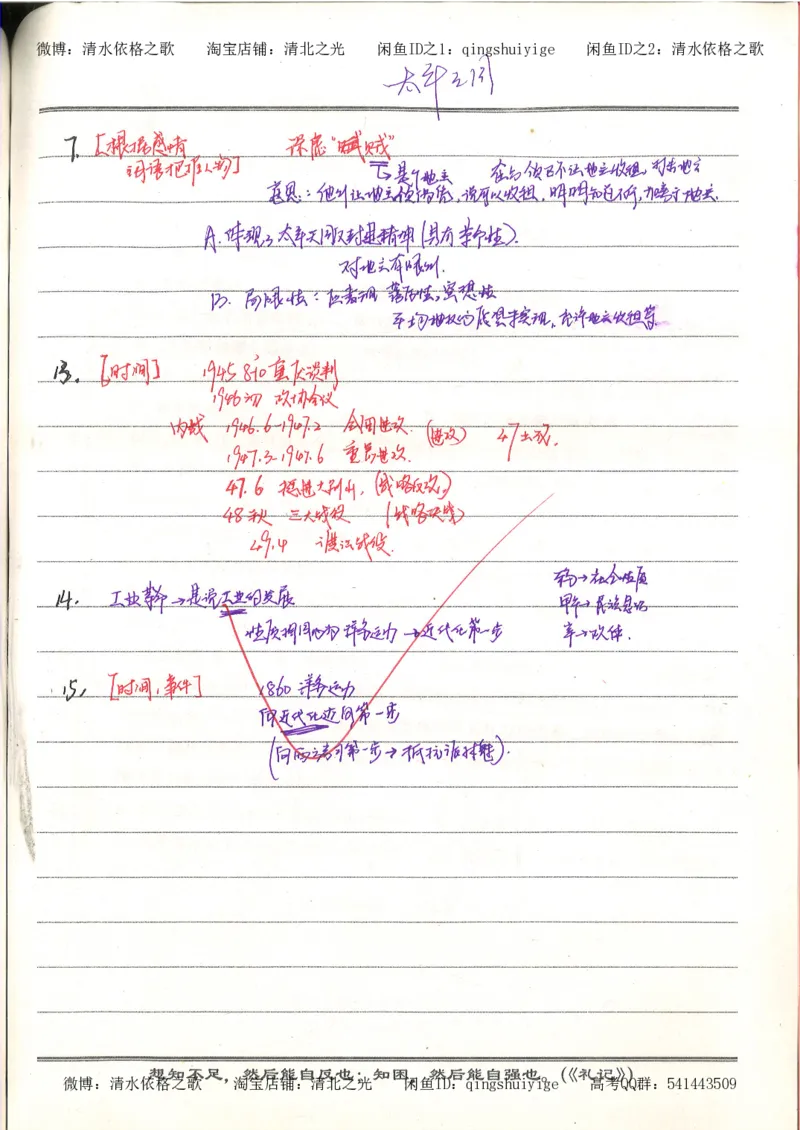 微博：清水依格之歌 淘宝店铺：清北之光 闲鱼ID之1：qingshuiyige 闲鱼ID之2：清水依格之歌
太平天国
7. [根据感情 深虑“贼”
词语把握人物] → 是个地主
意思：他们让地主，说可以收租，明明知道不可，
A. 体现了太平天国反封建精神（具有革命性）.
对地主有限制.
B. 局限性：落后性，空想性
平均地权的愿望未实现，允许地主收租等.
13. [时间] 1945 8-10 重庆谈判
1946初 政协会议
内战 1946.6-1947.2 全面进攻. (进攻) 47土改.
1947.3-1947.6 重点进攻.
47.6 挺进大别山, (战略反攻)
48秋 三大战役 (战略决战)
49.4 渡江战役.
鸦→社会性质
14. 工业革命→是说工业的发展 甲午→民族意识
性质相同的为洋务运动→近代化第一步 辛→政体.
15. [时间, 事件] 1860 洋务运动
向近代化迈向第一步
(向西方学习第一步→抵抗派林魏).
想知不足，然后能自反也；知困，然后能自强也。(《礼记》)
微博：清水依格之歌 淘宝店铺：清北之光 闲鱼ID：qingshuiyige 高考QQ群：541443509